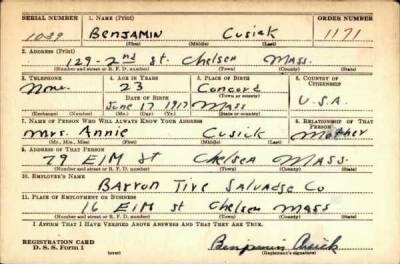 SERIAL NUMBER 1. NAME (Print) ORDER NUMBER
1039 BENJAMIN Cusick 1171
(First) (Middle) (Last)
2. ADDRESS (Print)
129-2nd St. Chelsea Mass.
(Number and street or R. F. D. number) (Town) (County) (State)
3. TELEPHONE 4. AGE IN YEARS 5. PLACE OF BIRTH 6. COUNTRY OF CITIZENSHIP
None. 23 Concord
(Town or county)
DATE OF BIRTH
June 17 1917 Mass U.S.A.
(Exchange) (Number) (Mo.) (Day) (Yr.) (State or country)
7. NAME OF PERSON WHO WILL ALWAYS KNOW YOUR ADDRESS 8. RELATIONSHIP OF THAT PERSON
Mrs. Annie Cusick Mother
(Mr., Mrs., Miss) (First) (Middle) (Last)
9. ADDRESS OF THAT PERSON
79 Elm St Chelsea Mass.
(Number and street or R. F. D. number) (Town) (County) (State)
10. EMPLOYER'S NAME
Barron Tire Salvadge Co
11. PLACE OF EMPLOYMENT OR BUSINESS
16 Elm St Chelsea Mass
(Number and street or R. F. D. number) (Town) (County) (State)
I AFFIRM THAT I HAVE VERIFIED ABOVE ANSWERS AND THAT THEY ARE TRUE.
REGISTRATION CARD
D. S. S. Form 1
Benjamin Cusick
(Registrant's signature)